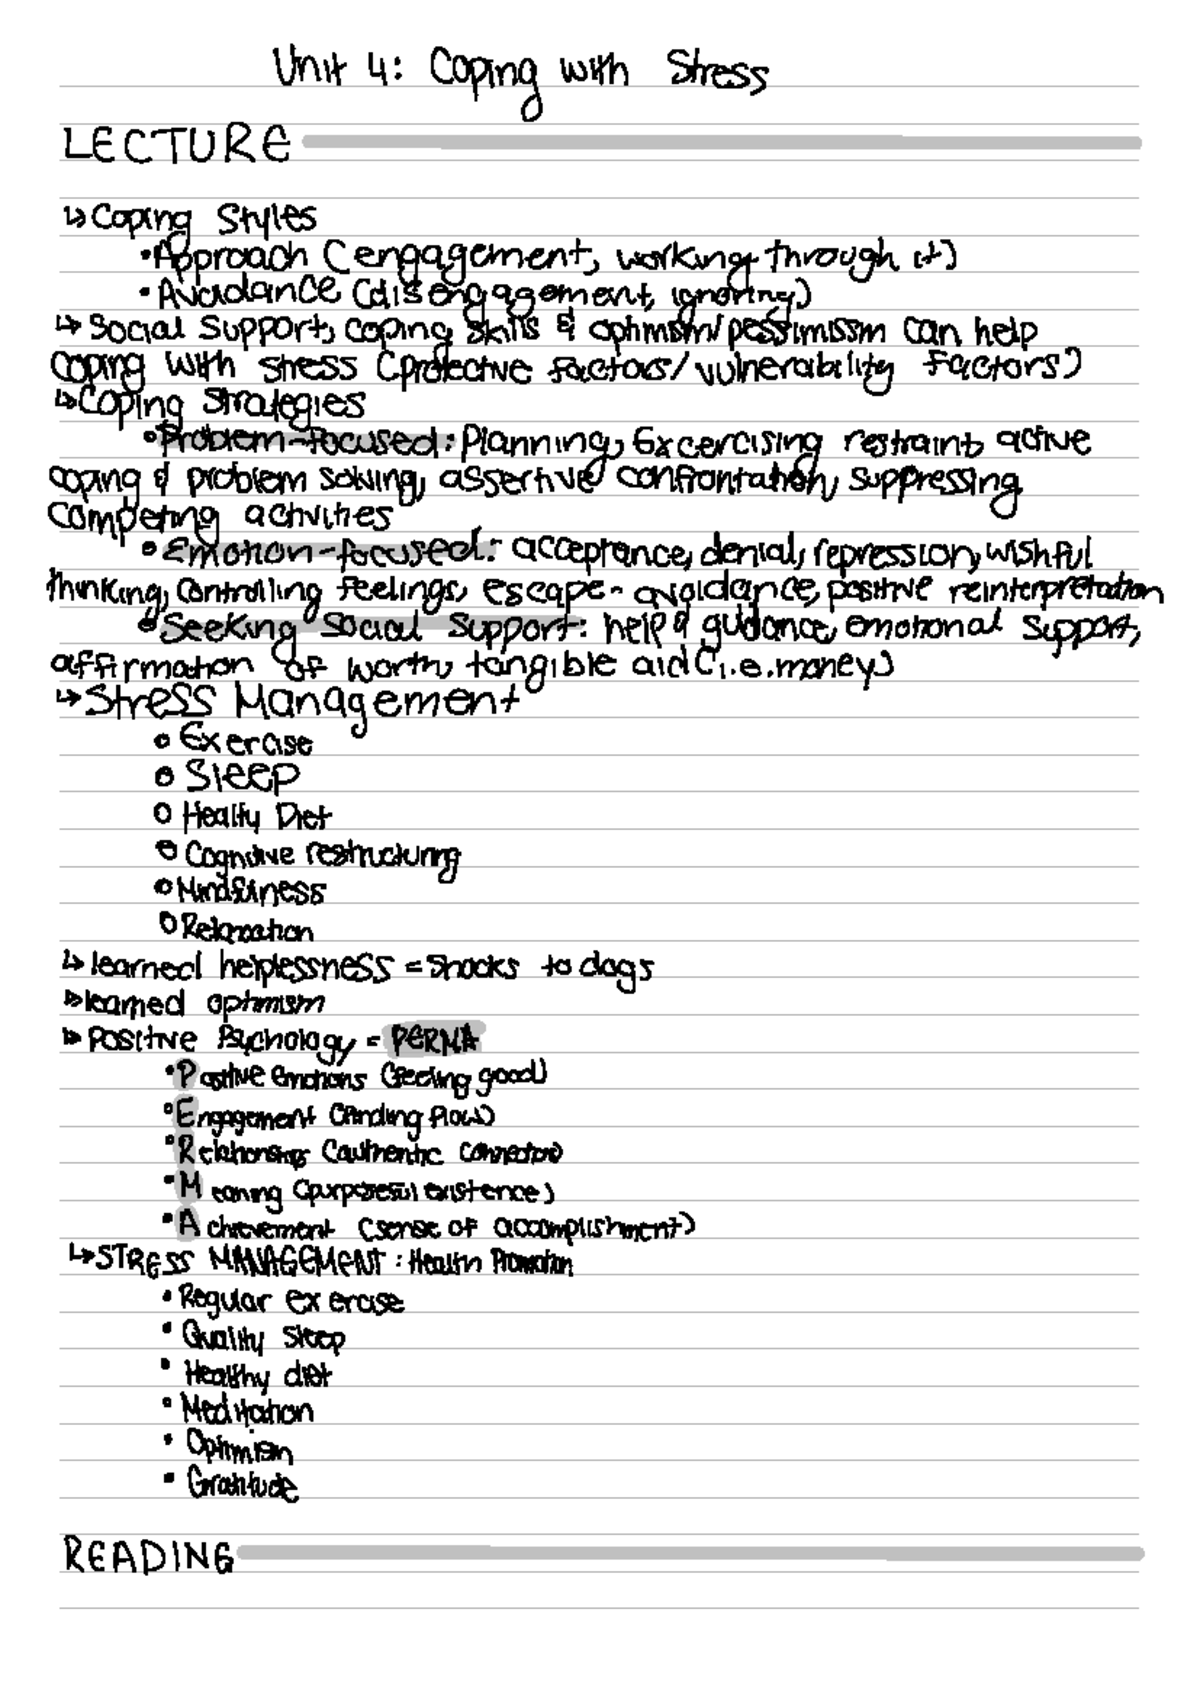 Unit 4: Coping with Stress
LECTURE
↳ Coping Styles
• Approach (engagement, working through it)
• Avoidance (disengagement, ignoring)
↳ Social Support, coping skills & optimism/pessimissm can help
coping with stress (protective factors/vulnerability factors)
↳ Coping Strategies
• Problem-focused: Planning, Excercising restraint, active
coping & problem solving, assertive confrontation, suppressing
competing activities
• Emotion-focused: acceptance, denial, repression, wishful
thinking, controlling feelings, escape-avoidance, positive reinterpretation
• Seeking Social Support: help & guidance, emotional support,
affirmation of worth, tangible aid (i.e. money)
↳ Stress Management
• Exercise
• Sleep
• Healty Diet
• Cognitive restructuring
• Mindfulness
• Relaxation
↳ learned helplessness = shocks to dogs
↳ learned optimism
↳ Positive Psychology = PERMA
• Positive emotions (feeling good)
• Engagement (finding flow)
• Relationships (authentic connection)
• Meaning (purposeful existence)
• Achievement (sense of accomplishment)
↳ STRESS MANAGEMENT: Health Promotion
• Regular exercise
• Quality Sleep
• Healthy diet
• Meditation
• Optimism
• Gratitude
READING